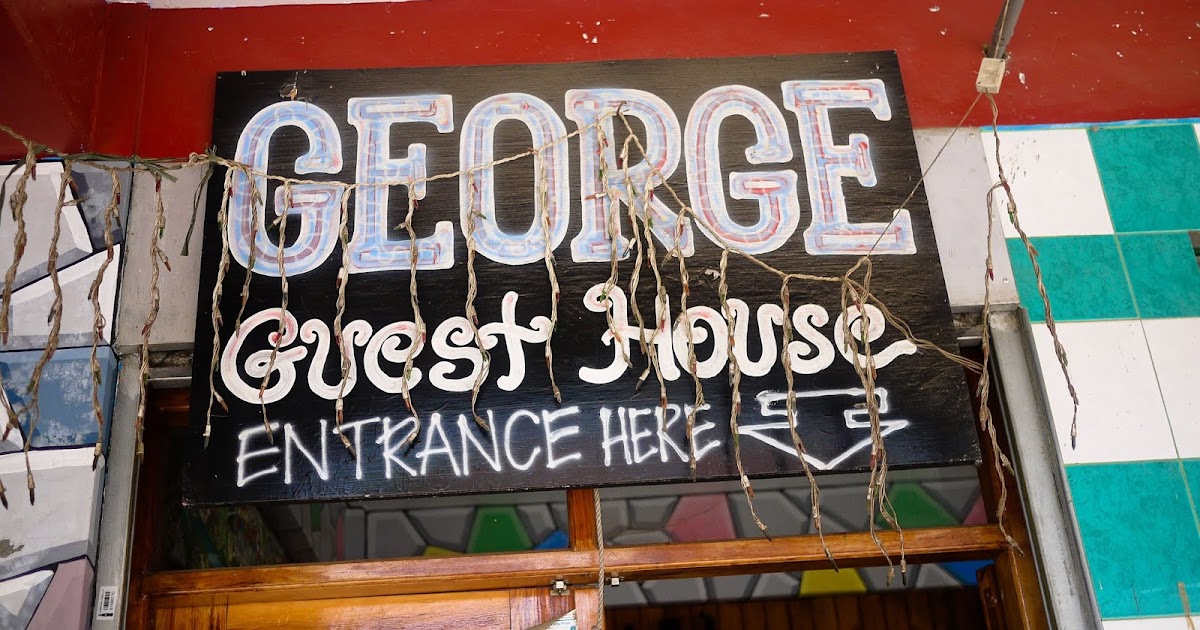 GEORGE
Guest House
ENTRANCE HERE